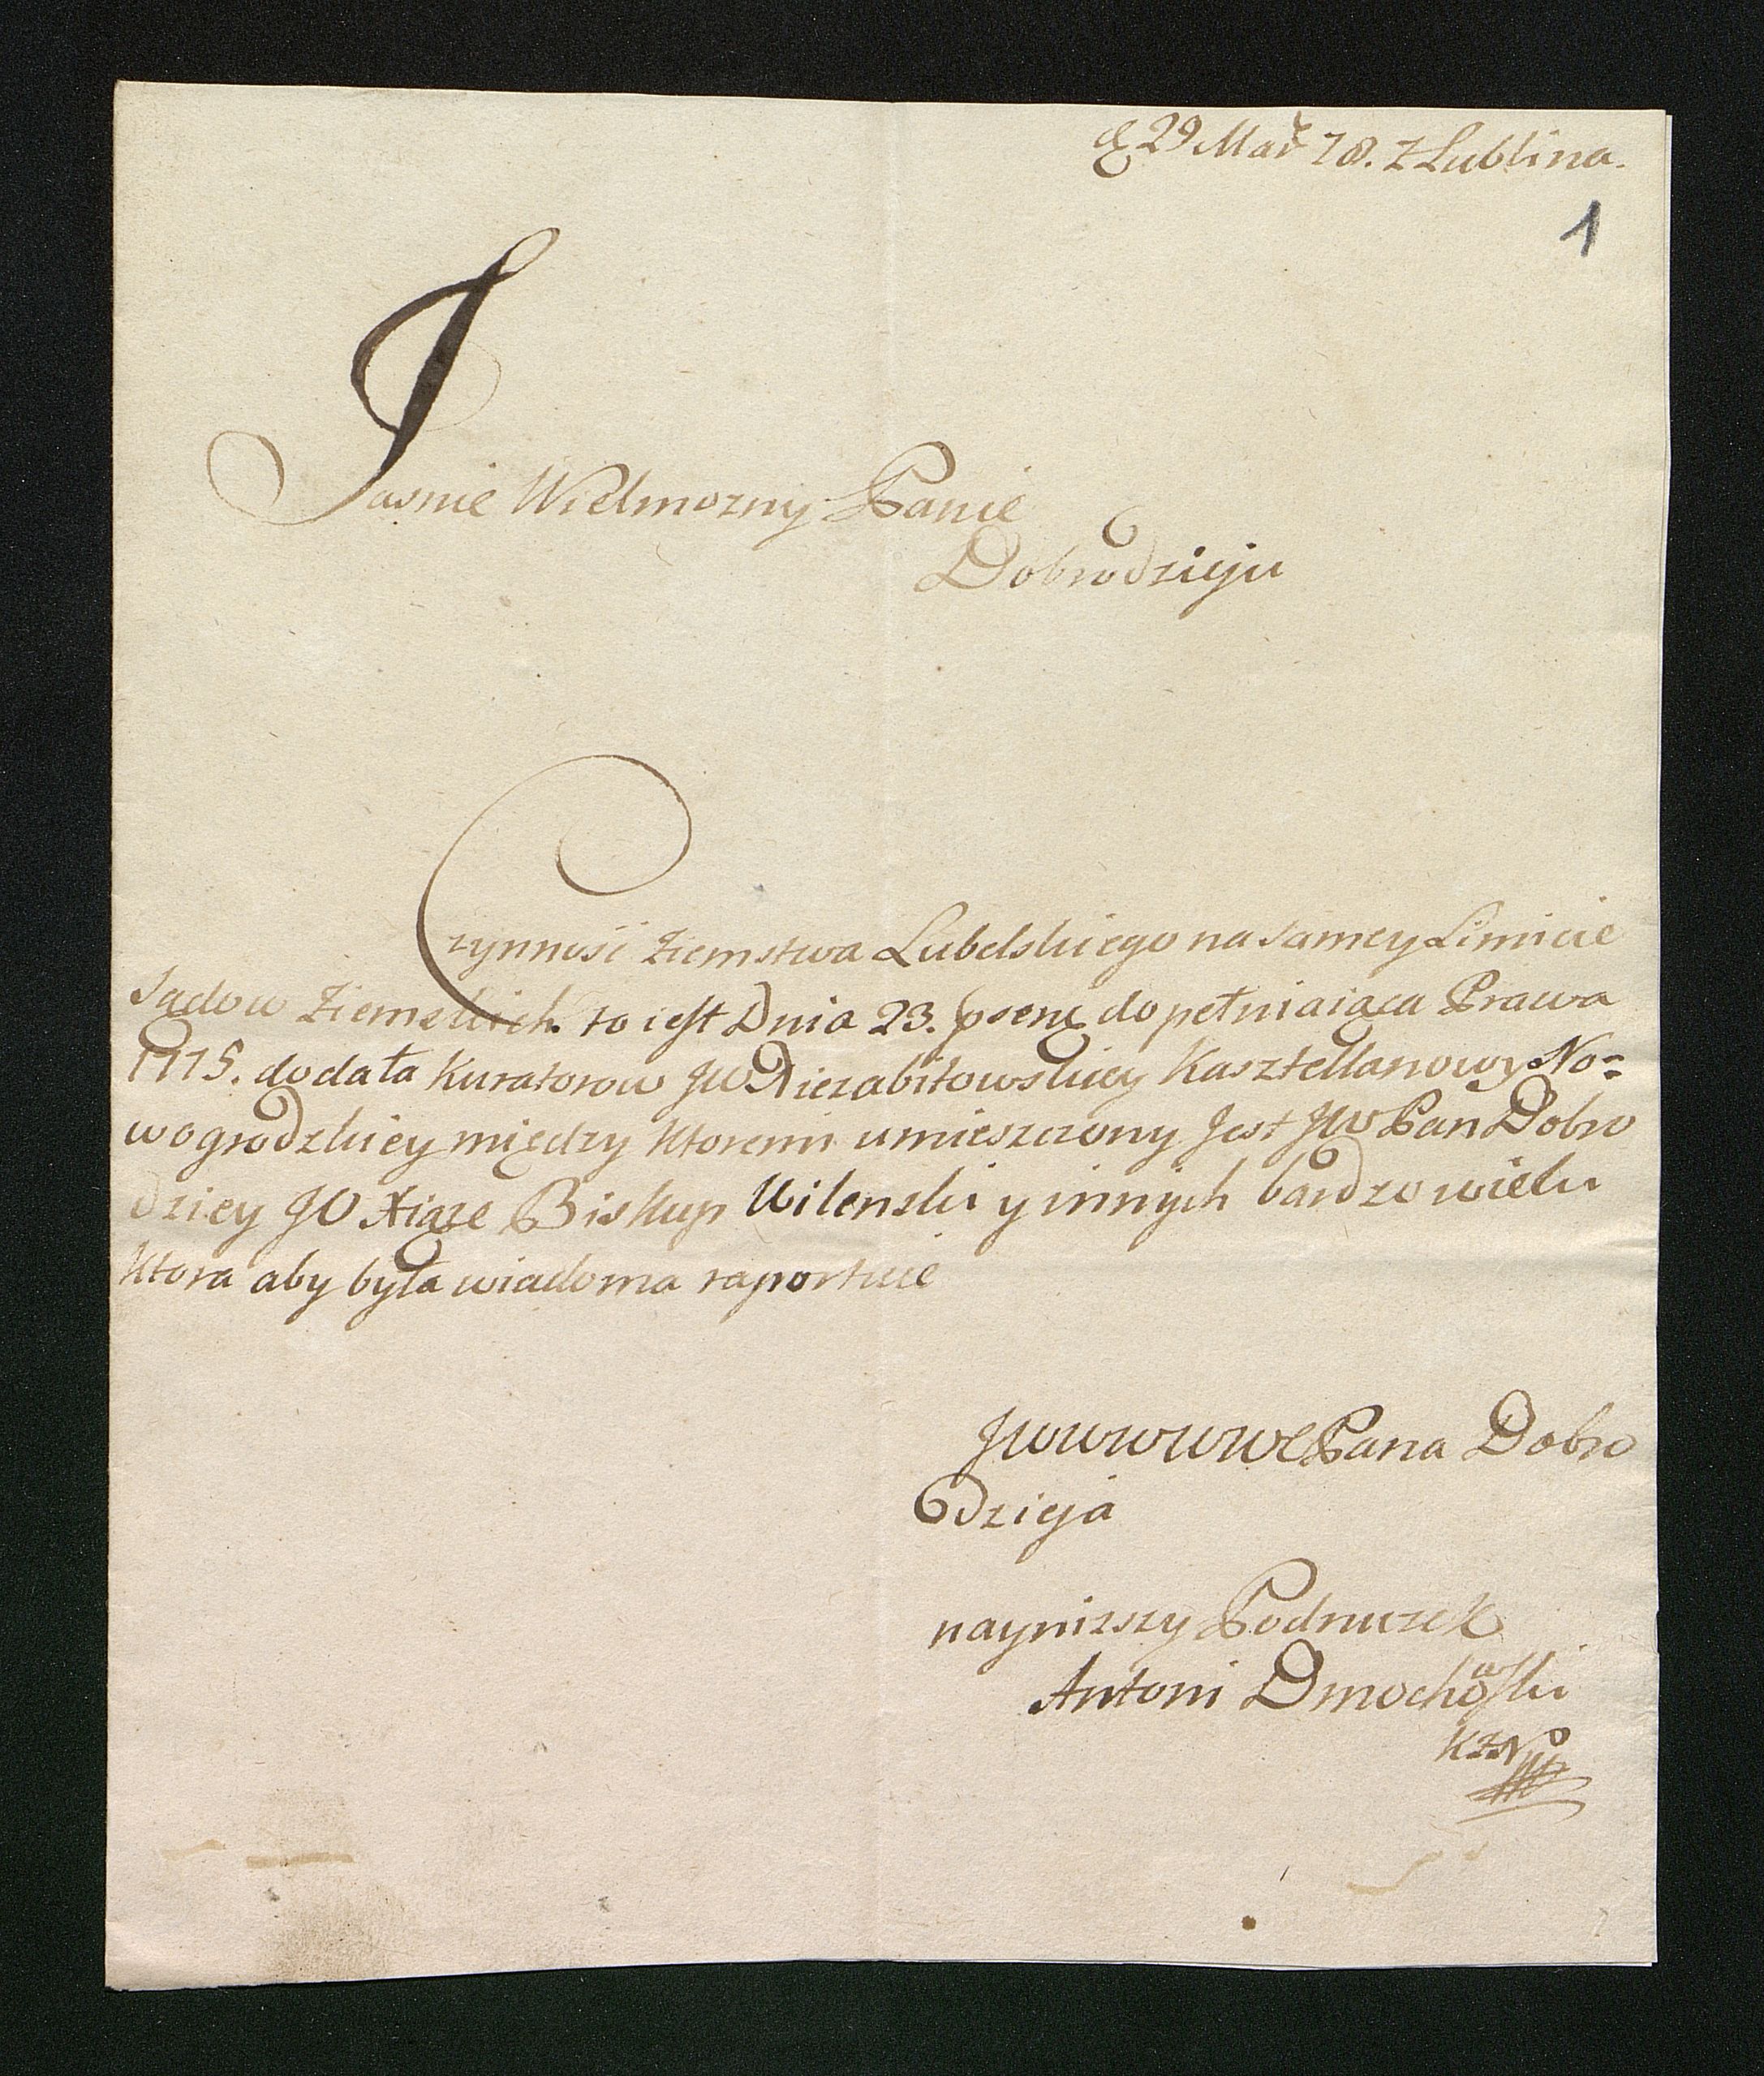 d 29 Mar 78. z Lublina.
1
Jasnie Wielmozny Panie
Dobrodzieju
Czynnosć Ziemstwa Lubelskiego na samey Limicie
Sądow Ziemskich to iest Dnia 23. psent dopełniaiąca Prawa
1775. dodała Kuratorow JW Niezabitowskiey Kasztellanowy No=
wogrodzkiey między ktoremi umieszczony Jest JW Pan Dobro
dziey JO Xiąze Biskup Wilenski y innych bardzo wielu
ktora aby była wiadoma raportuie
JWWWWWPana Dobro
dzieja
naynizszy Podnuzek
Antoni Dmochowski
KZN